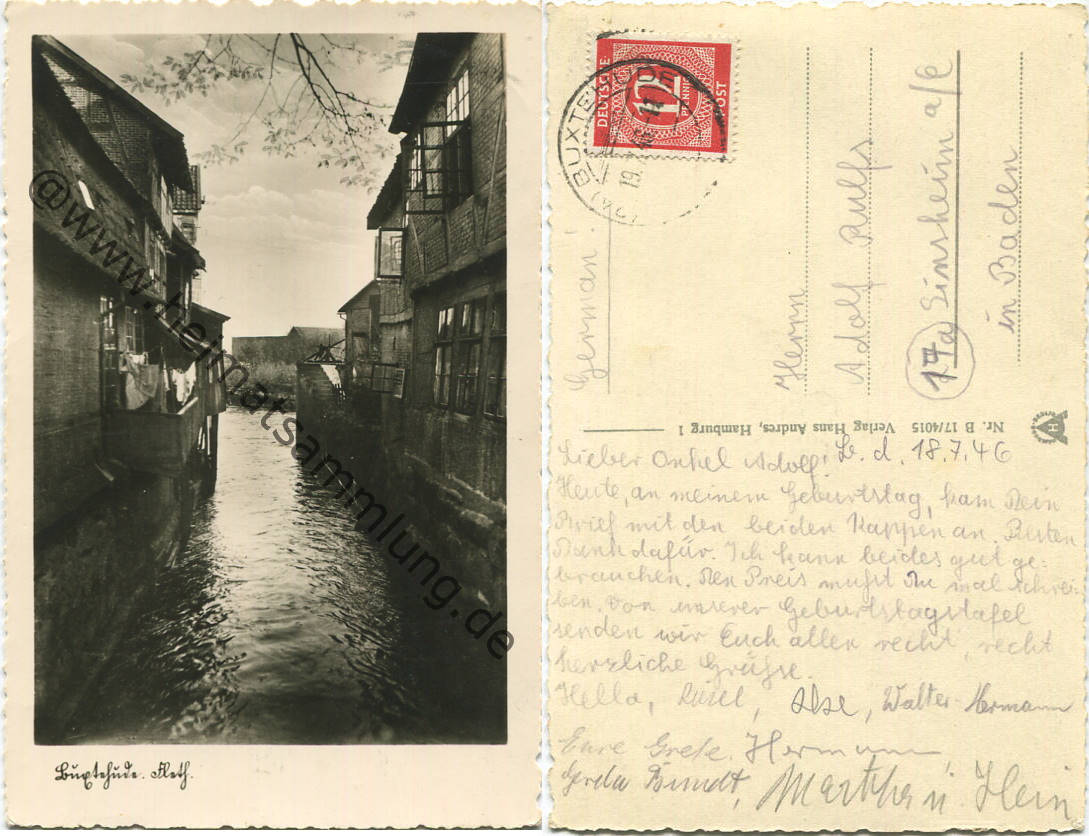 Buxtehude. Fleth.
@www.heimatsammlung.de
DEUTSCHE
12
PFENNIG
POST
BUXTEHUDE
German!
Herrn
Adolf Paulfs
17a Sinsheim a/E
in Baden
Nr. B 17/4015 Verlag Hans Andres, Hamburg 1
B. d. 18.7.46
Lieber Onkel Adolf!
Heute, an meinem Geburtstag, kam Dein
Brief mit den beiden Kappen an. Besten
Dank dafür. Ich kann beides gut ge-
brauchen. Den Preis mußt Du mal schrei-
ben. Von unserer Geburtstagstafel
senden wir Euch allen recht, recht
herzliche Grüsse.
Hella, Liesel, Ilse, Walter-Hermann
Eure Grete. Hermann,
Gerda Bundt, Martha u. Hein